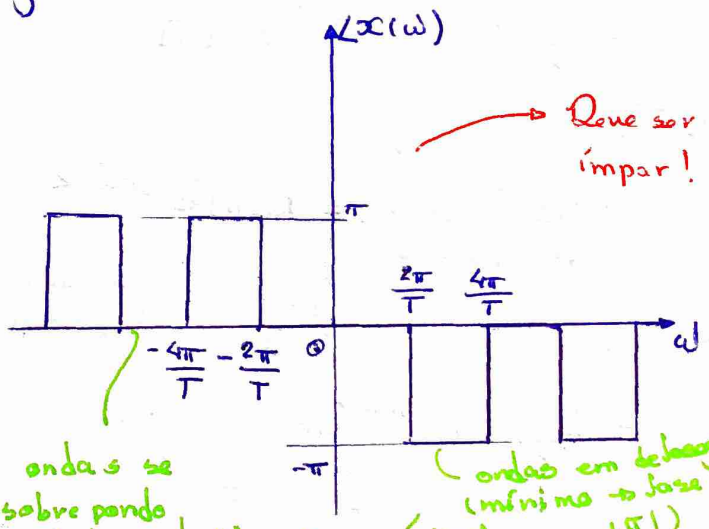 ∠x(ω)
Deve ser
ímpar!
π
2π/T
4π/T
-4π/T
-2π/T
0
ω
-π
ondas se
sobrepondo
ondas em
(mínimo → fase